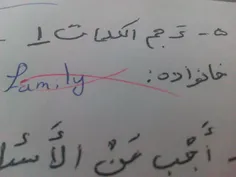 ٥- تَرجم الکلمات ١ -
خانواده: Family
- أَجْب عَنْ الأَسْـ